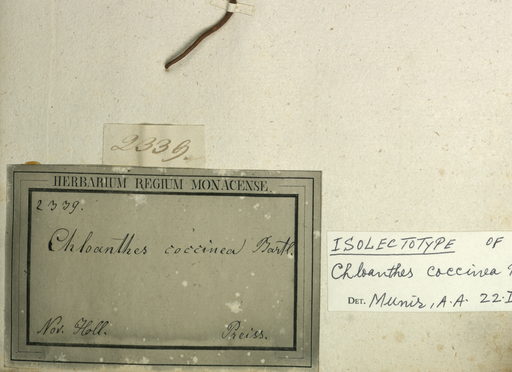 2339.
HERBARIUM REGIUM MONACENSE.
2339.
Chloanthes coccinea Bartl.
Nov. Holl. Preiss.
ISOLECTOTYPE OF
Chloanthes coccinea
DET. Munir, A.A. 22.I